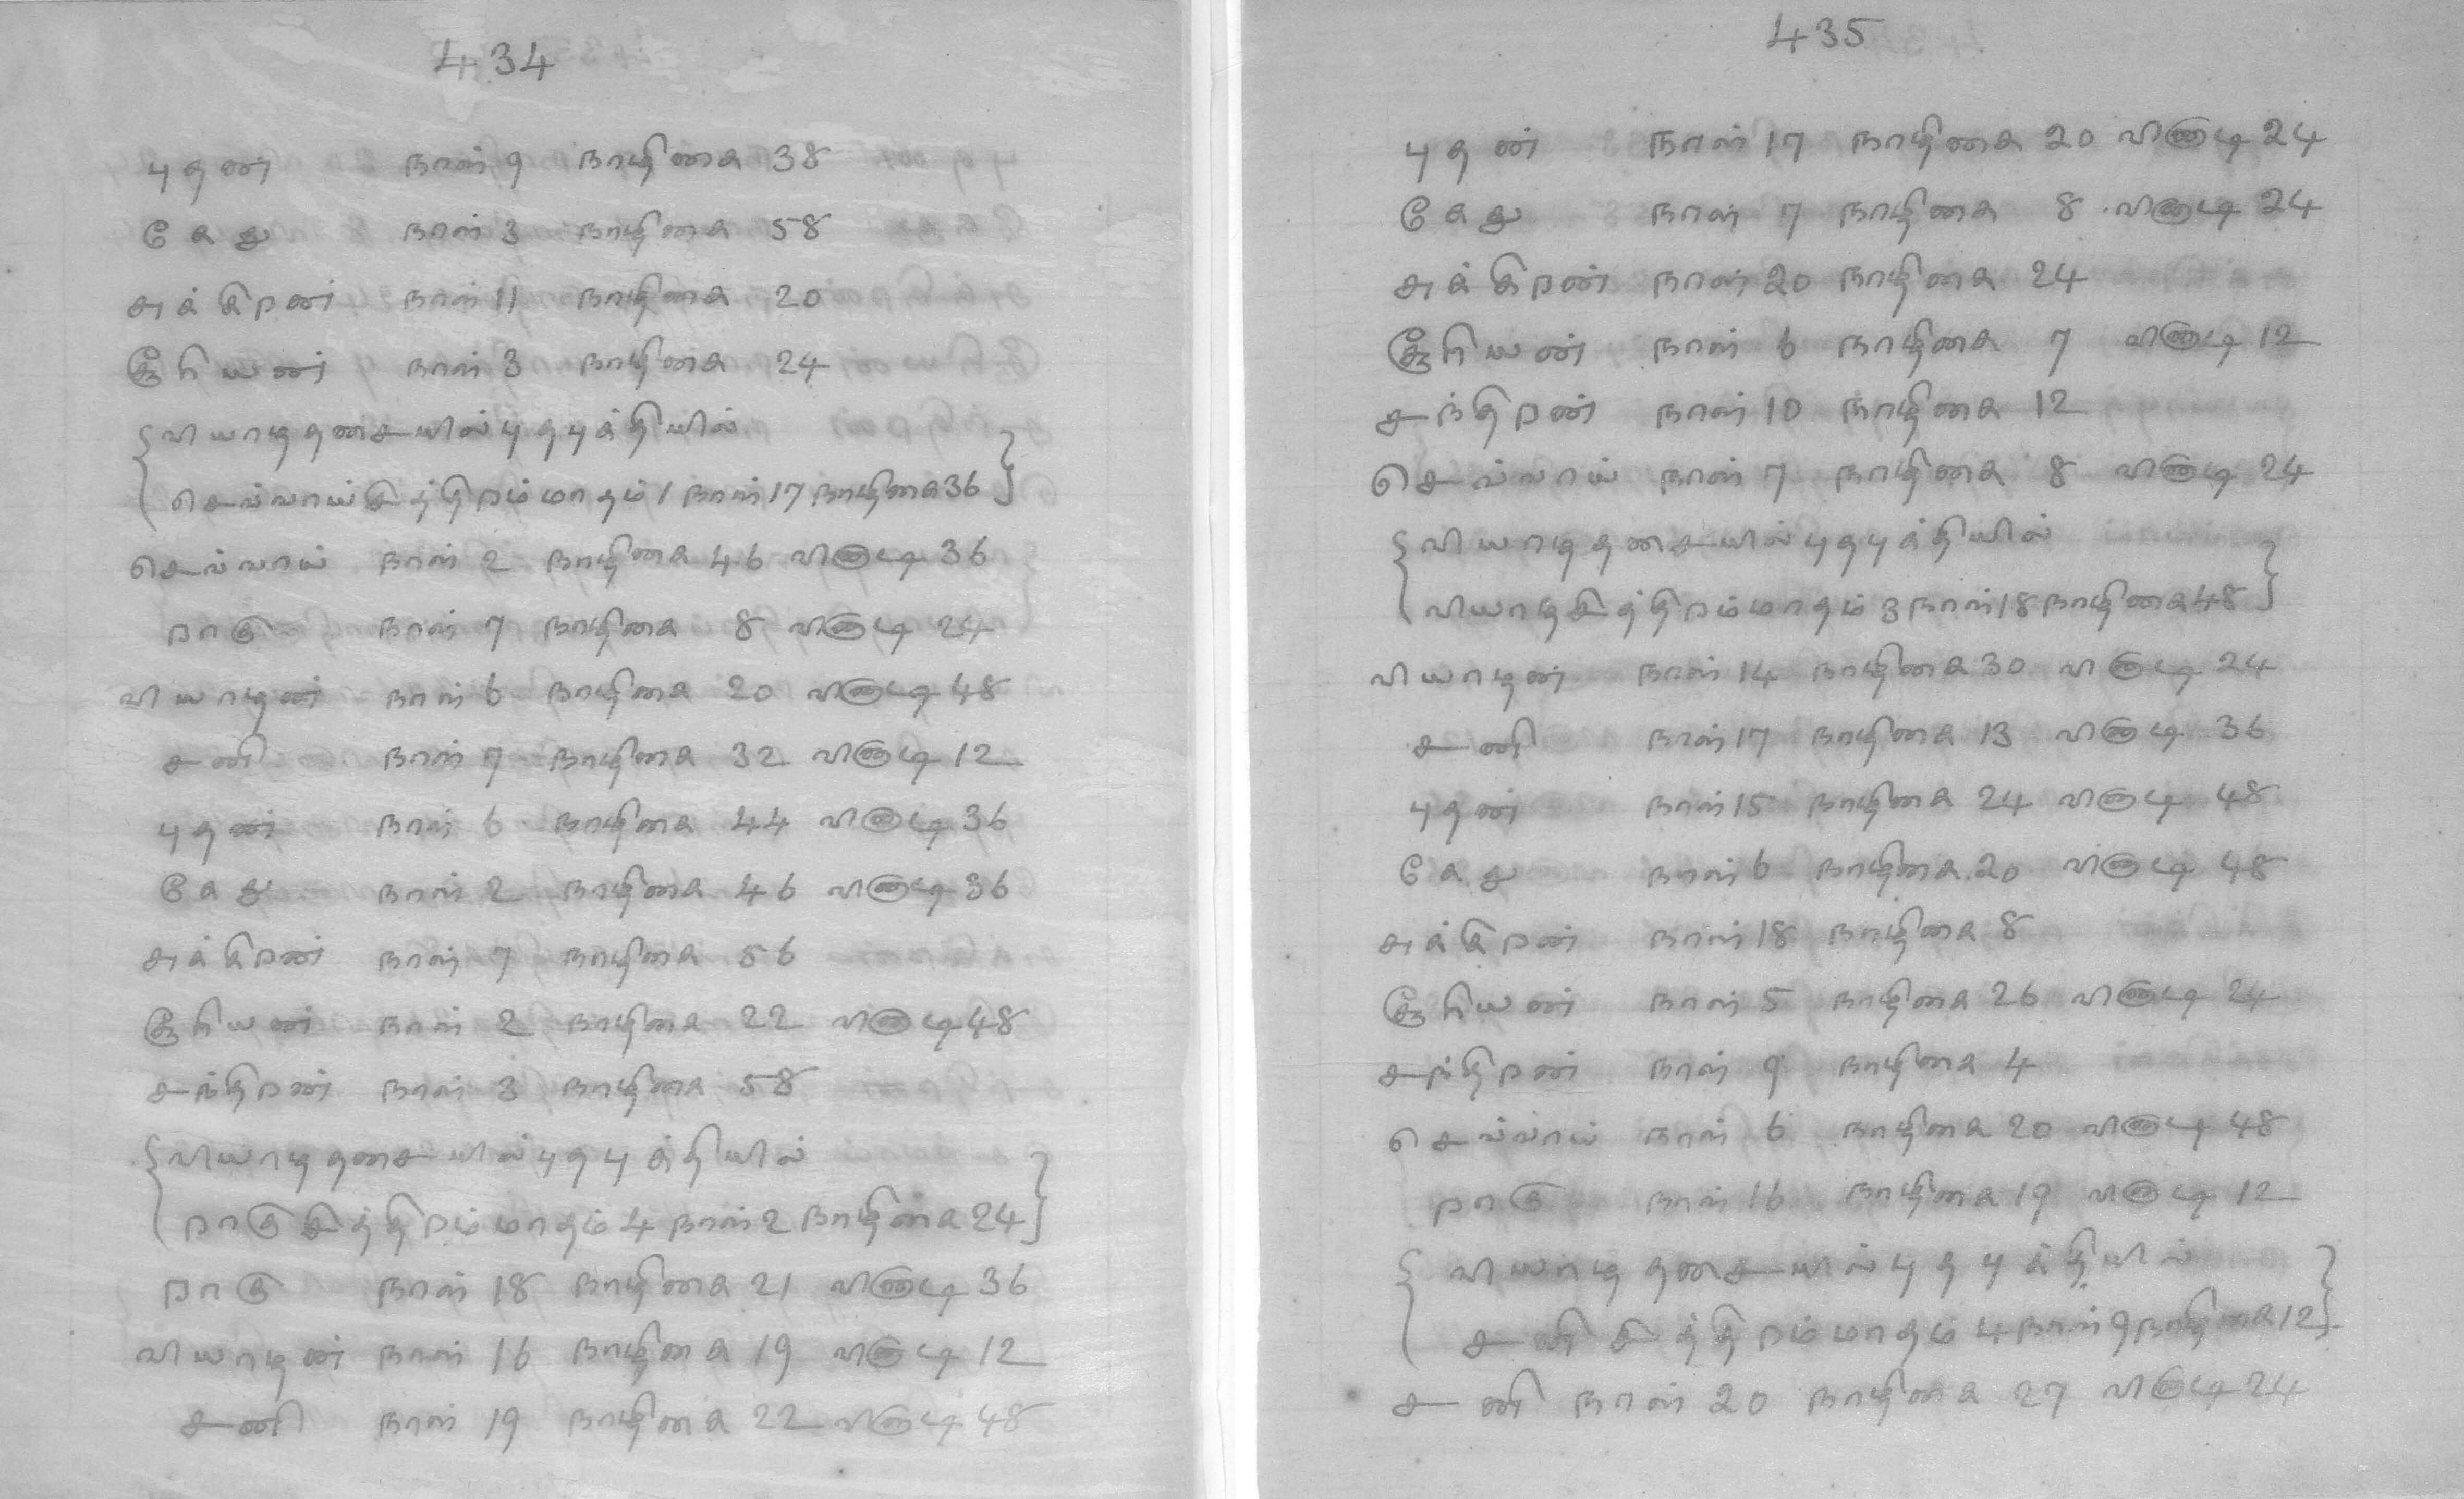 434
புதன் நாள் 9 நாழிகை 38
கேது நாள் 3 நாழிகை 58
சுக்கிறன் நாள் 11 நாழிகை 20
சூரியன் நாள் 3 நாழிகை 24
{வியாழதசையில் புதபுக்தியில்
செவ்வாய்சித்திறம் மாதம் 1 நாள் 17 நாழிகை 36}
செவ்வாய் நாள் 2 நாழிகை 46 வினாடி 36
றாகு நாள் 7 நாழிகை 8 வினாடி 24
வியாழன் நாள் 6 நாழிகை 20 வினாடி 48
சனி நாள் 7 நாழிகை 32 வினாடி 12
புதன் நாள் 6 நாழிகை 44 வினாடி 36
கேது நாள் 2 நாழிகை 46 வினாடி 36
சுக்கிறன் நாள் 7 நாழிகை 56
சூரியன் நாள் 2 நாழிகை 22 வினாடி 48
சந்திறன் நாள் 3 நாழிகை 58
{வியாழதசையில் புதபுக்தியில்
றாகுசித்திறம் மாதம் 4 நாள் 2 நாழிகை 24}
றாகு நாள் 18 நாழிகை 21 வினாடி 36
வியாழன் நாள் 16 நாழிகை 19 வினாடி 12
சனி நாள் 19 நாழிகை 22 வினாடி 48
435
புதன் நாள் 17 நாழிகை 20 வினாடி 24
கேது நாள் 7 நாழிகை 8 வினாடி 24
சுக்கிறன் நாள் 20 நாழிகை 24
சூரியன் நாள் 6 நாழிகை 7 வினாடி 12
சந்திறன் நாள் 10 நாழிகை 12
செவ்வாய் நாள் 7 நாழிகை 8 வினாடி 24
{வியாழதசையில் புதபுக்தியில்
வியாழசித்திறம் மாதம் 3 நாள் 18 நாழிகை 48}
வியாழன் நாள் 14 நாழிகை 30 வினாடி 24
சனி நாள் 17 நாழிகை 13 வினாடி 36
புதன் நாள் 15 நாழிகை 24 வினாடி 48
கேது நாள் 6 நாழிகை 20 வினாடி 48
சுக்கிறன் நாள் 18 நாழிகை 8
சூரியன் நாள் 5 நாழிகை 26 வினாடி 24
சந்திறன் நாள் 9 நாழிகை 4
செவ்வாய் நாள் 6 நாழிகை 20 வினாடி 48
றாகு நாள் 16 நாழிகை 19 வினாடி 12
{வியாழதசையில் புதபுக்தியில்
சனிசித்திறம் மாதம் 4 நாள் 9 நாழிகை 12}
சனி நாள் 20 நாழிகை 27 வினாடி 24